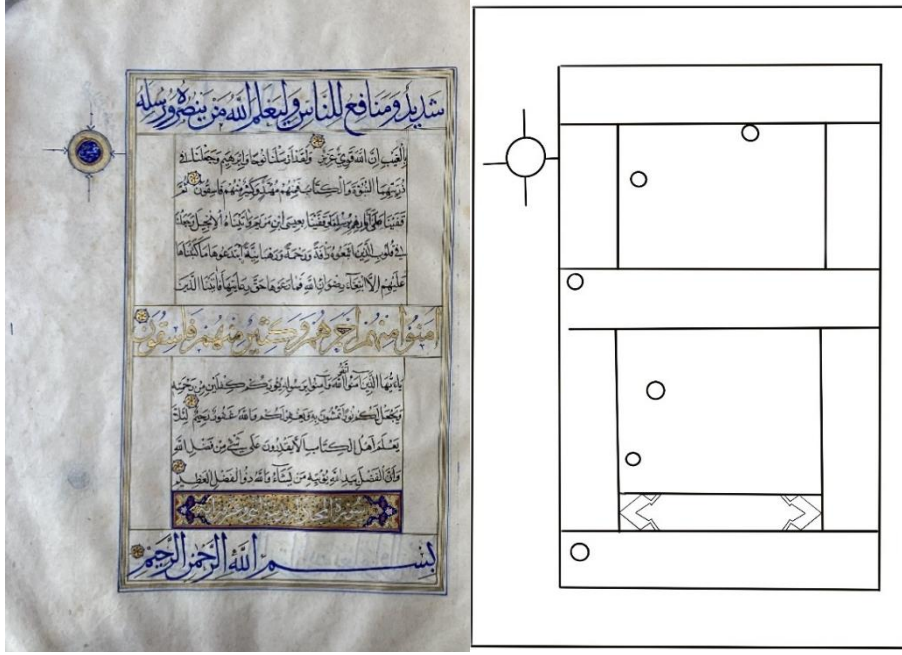 شديد ومنافع للناس وليعلم الله من ينصره ورسله
بالغيب ان الله قوي عزيز ولقد ارسلنا نوحا وابرهيم وجعلنا في
ذريتهما النبوة والكتاب فمنهم مهتد وكثير منهم فاسقون ثم
قفينا على اثارهم برسلنا وقفينا بعيسى ابن مريم واتيناه الانجيل وجعلنا
في قلوب الذين اتبعوه رأفة ورحمة ورهبانية ابتدعوها ما كتبناها
عليهم الا ابتغاء رضوان الله فما رعوها حق رعايتها فاتينا الذين
امنوا منهم اجرهم وكثير منهم فاسقون
يا ايها الذين آمنوا اتقوا الله وآمنوا برسوله يؤتكم كفلين من رحمته
ويجعل لكم نورا تمشون به ويغفر لكم والله غفور رحيم لئلا
يعلم اهل الكتاب الا يقدرون على شيء من فضل الله
وان الفضل بيد الله يؤتيه من يشاء والله ذو الفضل العظيم
سورة
بسم الله الرحمن الرحيم